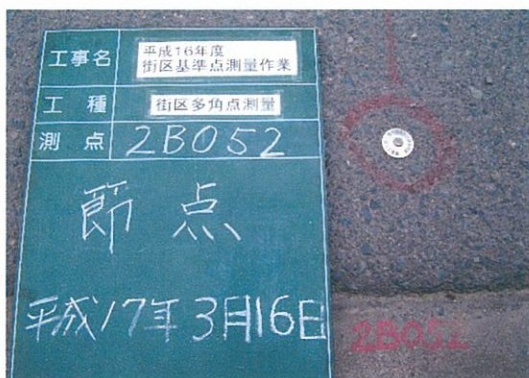 工事名
平成16年度
街区基準点測量作業
工種
街区多角点測量
測点
2B052
節点
平成17年3月16日
2B052